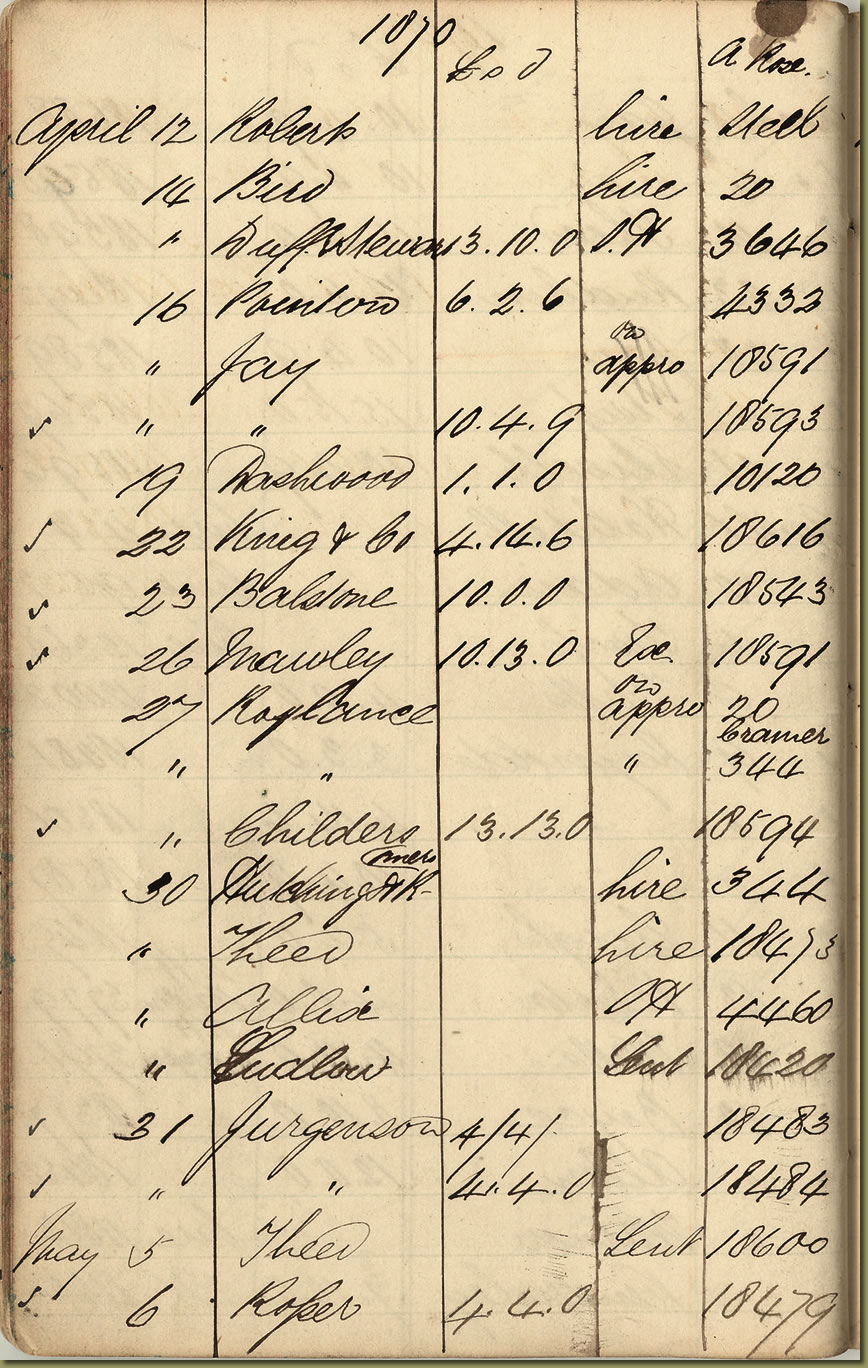 1870
£ s d A Rose.
April 12 Roberts hire Steel
14 Bird hire 20
" Duff & Stewart 3.10.0 S.H 3646
16 Pointon 6.2.6 4332
on
" Jay appro 18591
✓ " " 10.4.9 18593
19 Dashwood 1.1.0 10120
✓ 22 King & Co 4.14.6 18616
✓ 23 Balstone 10.0.0 18543
✓ 26 Mawley 10.13.0 Ex 18591
on
27 Roylance appro 20
Cramer
" " " 344
✓ " Childers 13.13.0 18594
30 hire 344
" Theed hire 18473
" Allix SH 4460
" Ludlow Lent 18420
✓ 31 Jurgenson 4/4/ 18483
✓ " " 4.4.0 18484
May 5 Theed Lent 18600
6 Roper 4.4.0 18479